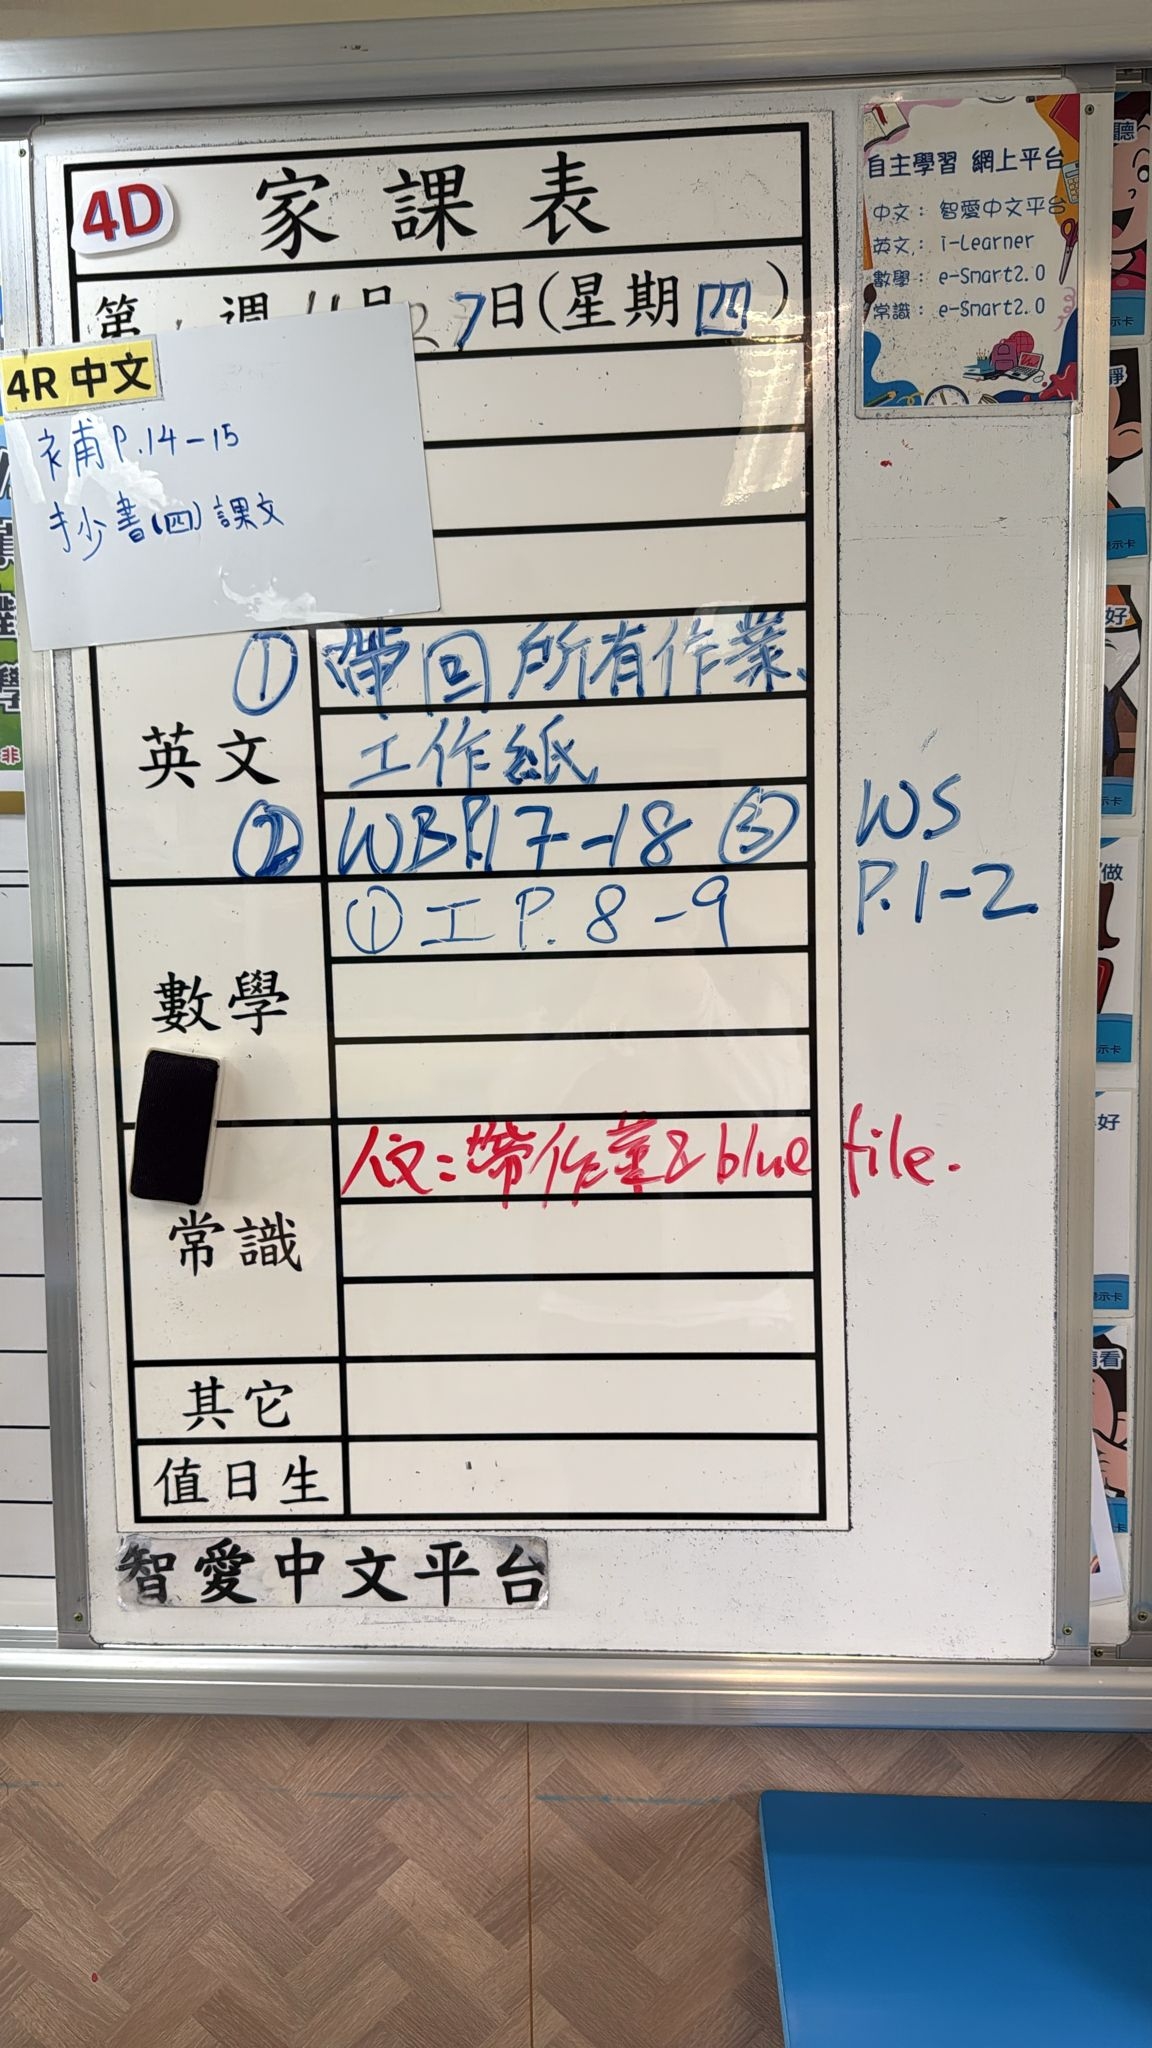 4D 家課表
第 週 11月27日(星期四)
4R 中文
補P.14-15
抄書(四)課文
英文
① 帶回所有作業、
工作紙
② WBP.17-18 ③ WS
P.1-2
數學
① 工 P. 8-9
常識
人文:帶作業& blue file.
其它
值日生
智愛中文平台
自主學習 網上平台
中文: 智愛中文平台
英文: i-Learner
數學: e-Smart2.0
常識: e-Smart2.0
聽
示卡
靜
提示卡
好
示卡
做
示卡
好
提示卡
請看
示卡
學
非